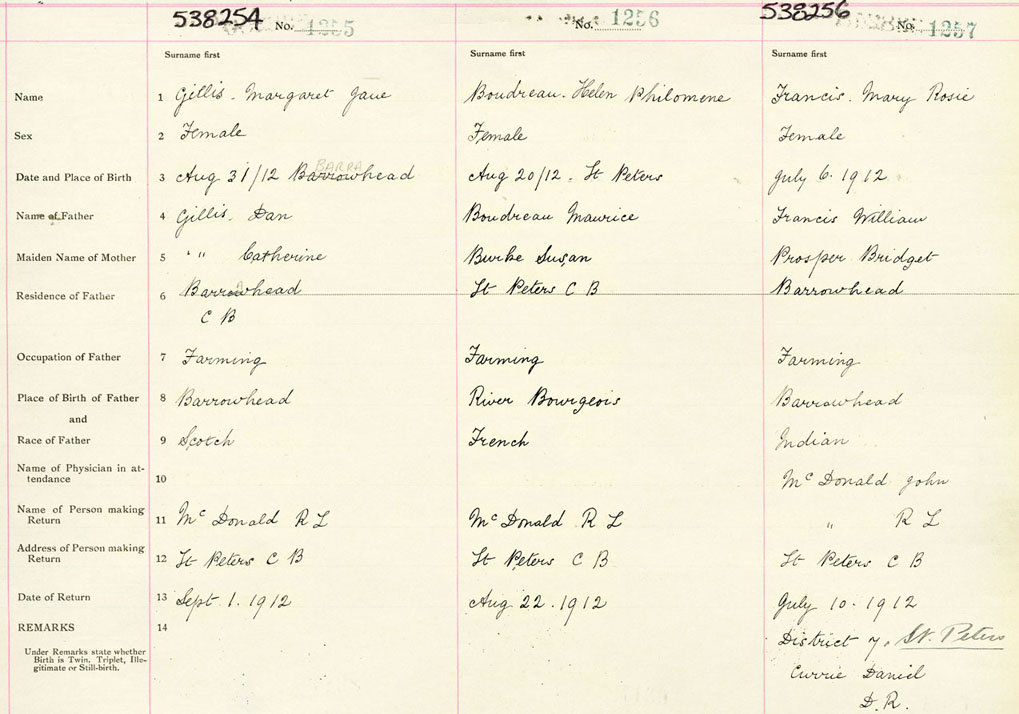 538254 No. 1255 No. 1256 538256 No. 1257
Surname first Surname first Surname first
Name 1 Gillis. Margaret Jane Boudreau. Helen Philomene Francis. Mary Rosie
Sex 2 Female Female Female
BARRA
Date and Place of Birth 3 Aug 31/12 Barrowhead Aug 20/12. St Peters July 6. 1912
Name of Father 4 Gillis. Dan Boudreau Maurice Francis William
Maiden Name of Mother 5 " Catherine Burke Susan Prosper Bridget
Residence of Father 6 Barrowhead St Peters C B Barrowhead
C B
Occupation of Father 7 Farming Farming Farming
Place of Birth of Father 8 Barrowhead River Bourgeois Barrowhead
and
Race of Father 9 Scotch French Indian
Name of Physician in at-
tendance 10 McDonald John
Name of Person making
Return 11 McDonald R L McDonald R L " R L
Address of Person making
Return 12 St Peters C B St Peters C B St Peters C B
Date of Return 13 Sept. 1. 1912 Aug 22. 1912 July 10. 1912
REMARKS 14
District 7. St. Peters
Under Remarks state whether
Birth is Twin, Triplet, Ille-
gitimate or Still-birth.
Currie Daniel
D.R.